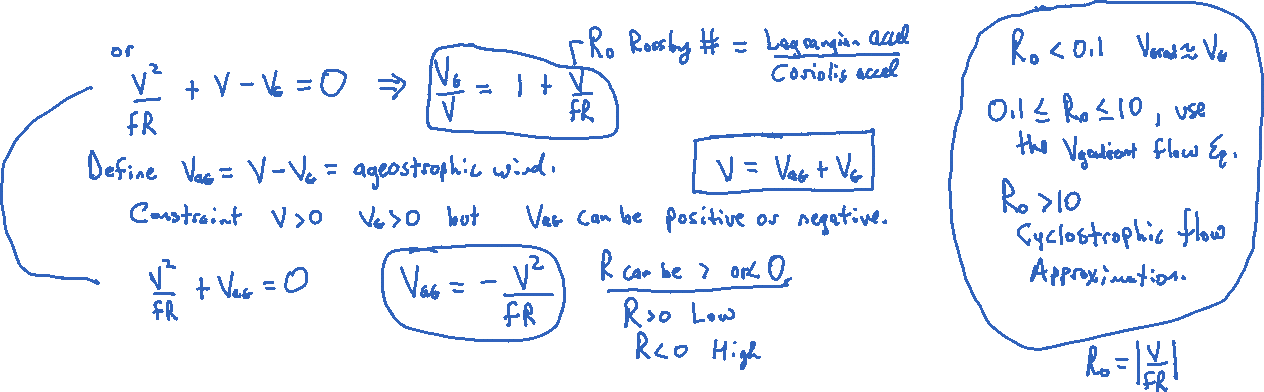 or
V²/fR + V - V_G = 0 ⇒ V_G/V = 1 + V/fR
R₀ Rossby # = Lagrangian accel / Coriolis accel
Define V_AG = V - V_G = ageostrophic wind.
V = V_AG + V_G
Constraint V>0 V_G>0 but V_AG can be positive or negative.
V²/fR + V_AG = 0
V_AG = - V²/fR
R can be > or < 0
R>0 Low
R<0 High
R₀ < 0.1 V_grad ≈ V_G
0.1 ≤ R₀ ≤ 10, use
the V_gradient flow Eq.
R₀ > 10
Cyclostrophic flow
Approximation.
R₀ = |V/fR|